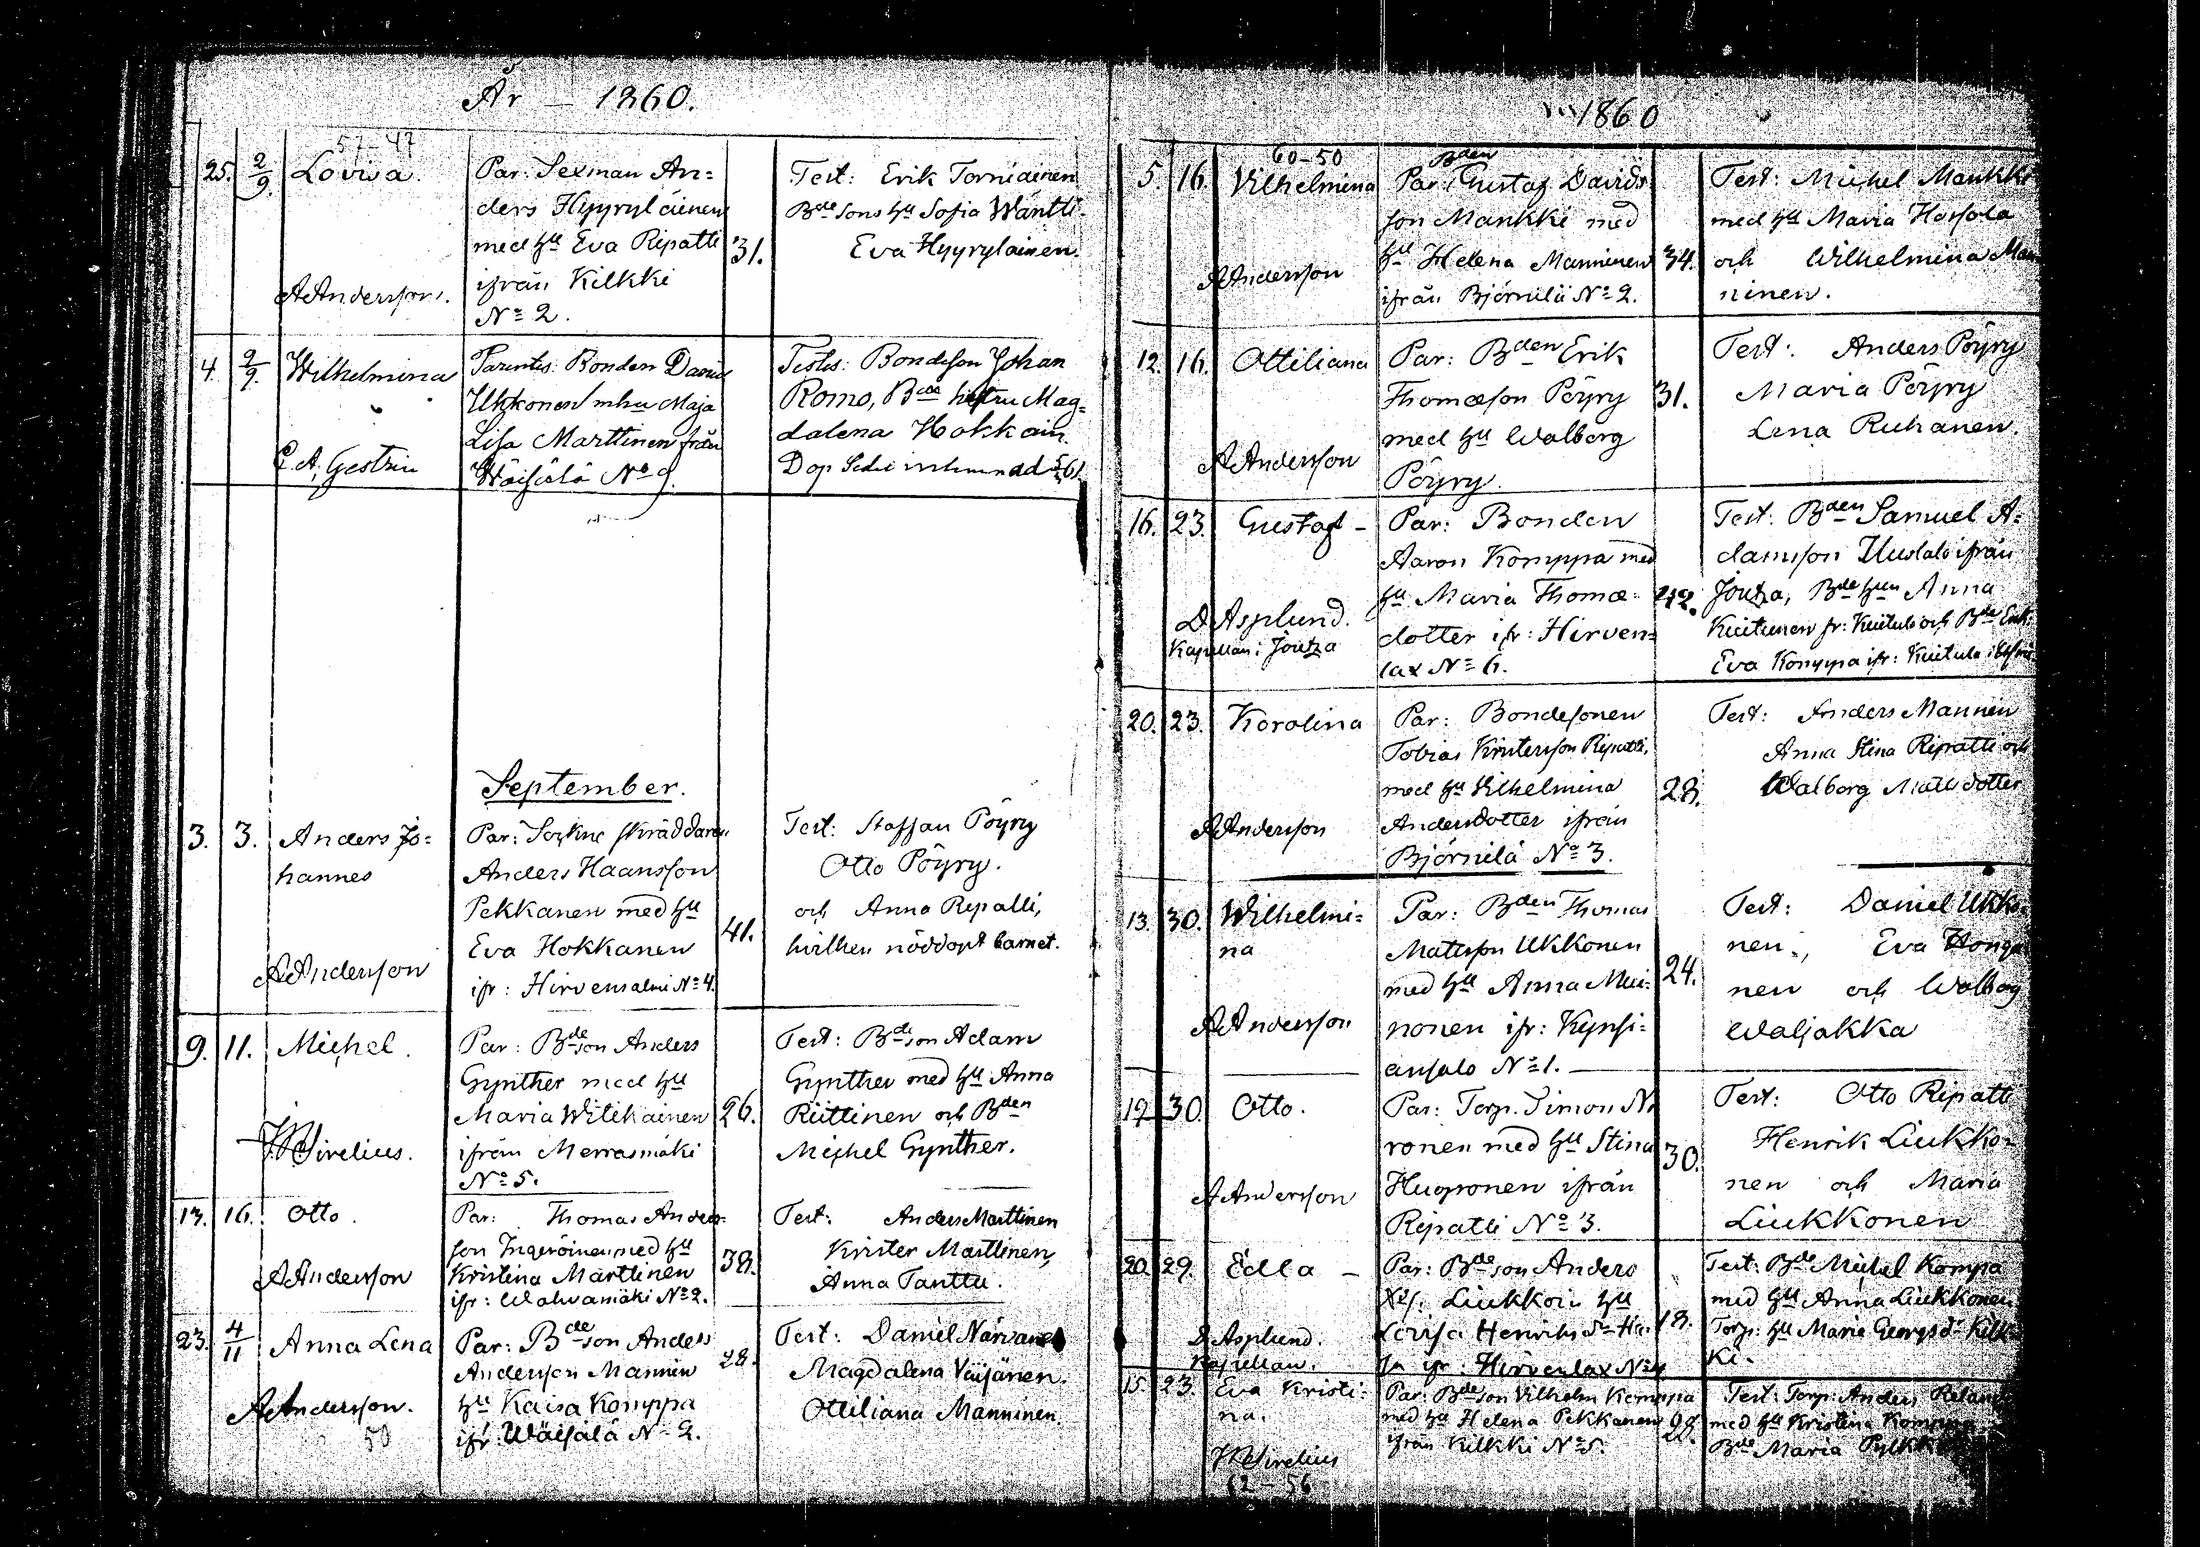 År — 1860.
57-47
25. 2/9. Lovisa.
A Andersson.
Par: Sexman An=
ders Hyyryläinen
med hu Eva Ripatti
ifrån Kilkki
No 2.
31.
Test: Erik Torniainen
Bdesons hu Sofia Wäntti
Eva Hyyryläinen.
4. 2/9. Wilhelmina
C. A. Gestrin
Parentes: Bonden David
Ukkonen mhu Maja
Lisa Marttinen från
Wäisälä No 9.
Testes: Bondeson Johan
Romo, Bde hustru Mag=
dalena Hokkain.
Dop
September.
3. 3. Anders Jo=
hannes
A Andersson
Par: Sockne skräddaren
Anders Haansson
Pekkanen med hu
Eva Hokkanen
ifr: Hirvensalmi No 4.
41.
Test: Staffan Pöyry
Otto Pöyry.
och Anna Repatti,
hvilken nöddöpt barnet.
9. 11. Michel.
Sirelius.
Par: Bdeson Anders
Gynther med hu
Maria Witikainen
ifrån Merrasmäki
No 5.
26.
Test: Bdeson Adam
Gynther med hu Anna
Riittinen och Bden
Michel Gynther.
13. 16. Otto.
A Andersson
Par: Thomas Anders=
son Ingeröinen med hu
Kristina Marttinen
ifr: Wahvamäki No 2.
38.
Test: Anders Marttinen
Krister Marttinen,
Anna Tanttu.
23. 4/11 Anna Lena
A Andersson.
50
Par: Bdeson Anders
Andersson Mannin
hu Kaisa Komppa
ifr: Wäisälä No 2.
28.
Test: Daniel Närvänen
Magdalena Väisänen.
Ottiliana Manninen.
1860
60-50
5. 16. Vilhelmina
A Andersson
Par: Bden Gustaf Davids
son Mankki med
hu Helena Manninen
ifrån Björnilä No 2.
34.
Test: Michel Mankki
med hu Maria Hasola
och Wilhelmina Man
ninen.
12. 16. Ottiliana
A Andersson
Par: Bden Erik
Thomasson Pöyry
med hu Walborg
Pöyry.
31.
Test: Anders Pöyry
Maria Pöyry
Lena Ruhanen.
16. 23. Gustaf -
D Asplund.
Kapellan i Joutza
Par: Bonden
Aaron Komppa med
hu Maria Thomæ=
dotter ifr: Hirven=
lax No 6.
42.
Test: Bden Samuel A=
damsson Uustalo ifrån
Joutza, Bde hun Anna
Kuitunen fr: Kuitula och Bde Enk:
Eva Komppa ifr: Kuitula
20. 23. Karolina
A Andersson
Par: Bondesonen
Tobias Kristersson Ripatti,
med hu Vilhelmina
Andersdotter ifrån
Björnilä No 3.
28.
Test: Anders Mannin
Anna Stina Ripatti och
Walborg Matsdotter
13. 30. Wilhelmi=
na
A Andersson
Par: Bden Thomas
Matsson Ukkonen
med hu Anna Mui=
nonen ifr: Kynsi=
ansalo No 1.
24.
Test: Daniel Ukko=
nen, Eva Honga
nen och Walborg
Waljakka
19. 30. Otto.
A Andersson
Par: Torp. Simon Ni
ronen med hu Stina
Huoponen ifrån
Ripatti No 3.
30.
Test: Otto Ripatti
Henrik Liukko=
nen och Maria
Liukkonen
20. 29. Edla -
D Asplund.
Kapellan.
Par: Bdeson Anders
Liukkoin hu
Lovisa Henriks
ifr: Hirvenlax No 4
18.
Test: Bde Michel Kompa
med hu Anna Liukkonen
Torp: hu Maria Georgsd: Kilk=
ki.
15. 23. Eva Kristi=
na.
Sirelius
62-56
Par: Bdeson Vilhelm Komppa
med hu Helena Pekkanen
ifrån Kilkki No 5.
28.
Test: Torp: Anders Reland
med hu Kristina Komppa
Bde Maria